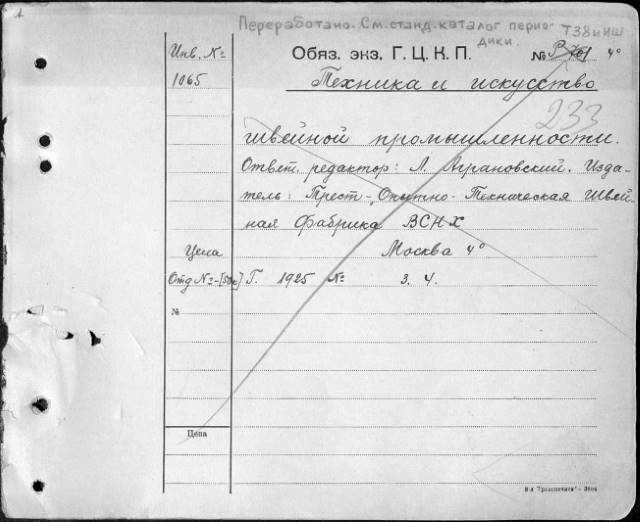 1
Переработано. См. станд. каталог перио-
дики.
Т38иИШ
Инв. №
Обяз. экз. Г. Ц. К. П.
№
4°
1065
Техника и искусство
233
швейной промышленности.
Ответ. редактор: Л. Аграновский. Изда-
тель: Трест-„Опытно-Техническая Швей-
ная Фабрика ВСНХ
Цена
Москва 4°
Отд №-[50к]
Г. 1925 № 3. 4.
№
Цена